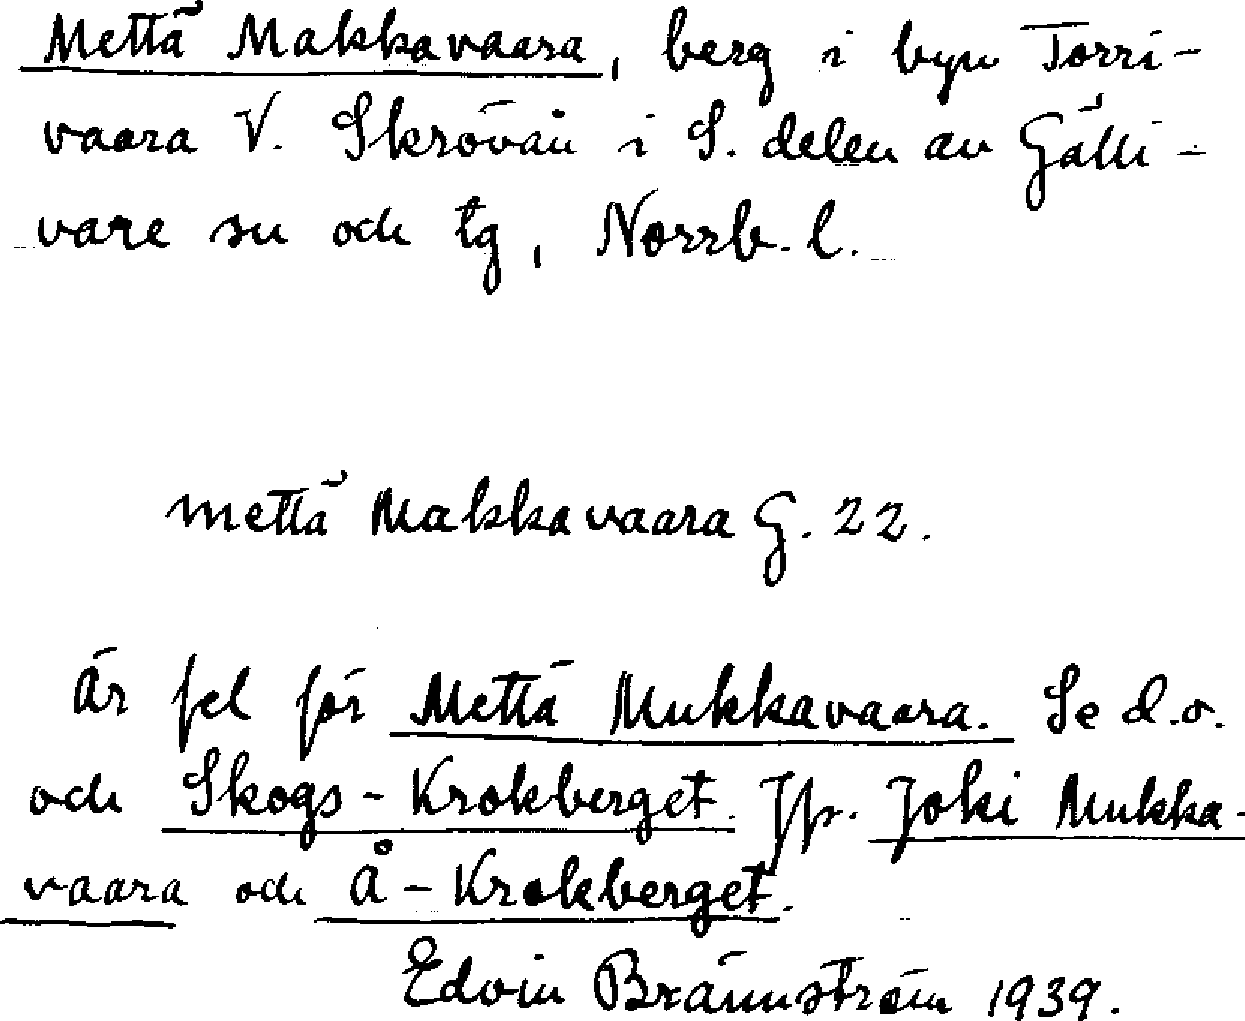 Mettä Makkavaara, berg i byn Torri-
vaara V. Skrövån i S. delen av Gälli-
vare sn och tg, Norrb. l.
mettä Makkavaara G. 22.
Är fel för Mettä Mukkavaara. Se d.o.
och Skogs-Krokberget. Jfr. Joki Mukka-
vaara och Å-Krokberget.
Edvin Brännström 1939.